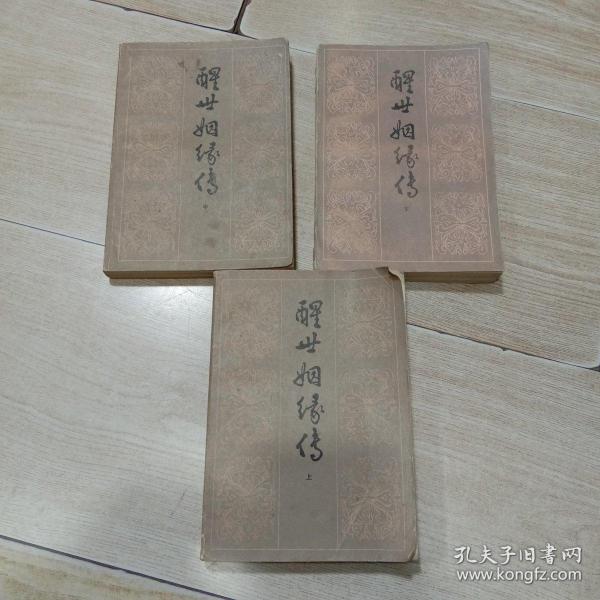 醒世姻缘传
中
醒世姻缘传
下
醒世姻缘传
上
孔夫子旧书网
www.kongfz.com